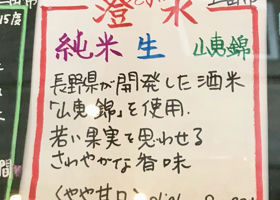 15度
一澄水
純米 生 山恵錦
長野県が開発した酒米
「山恵錦」を使用.
若い果実を思わせる
さわやかな香味
くやや甘口